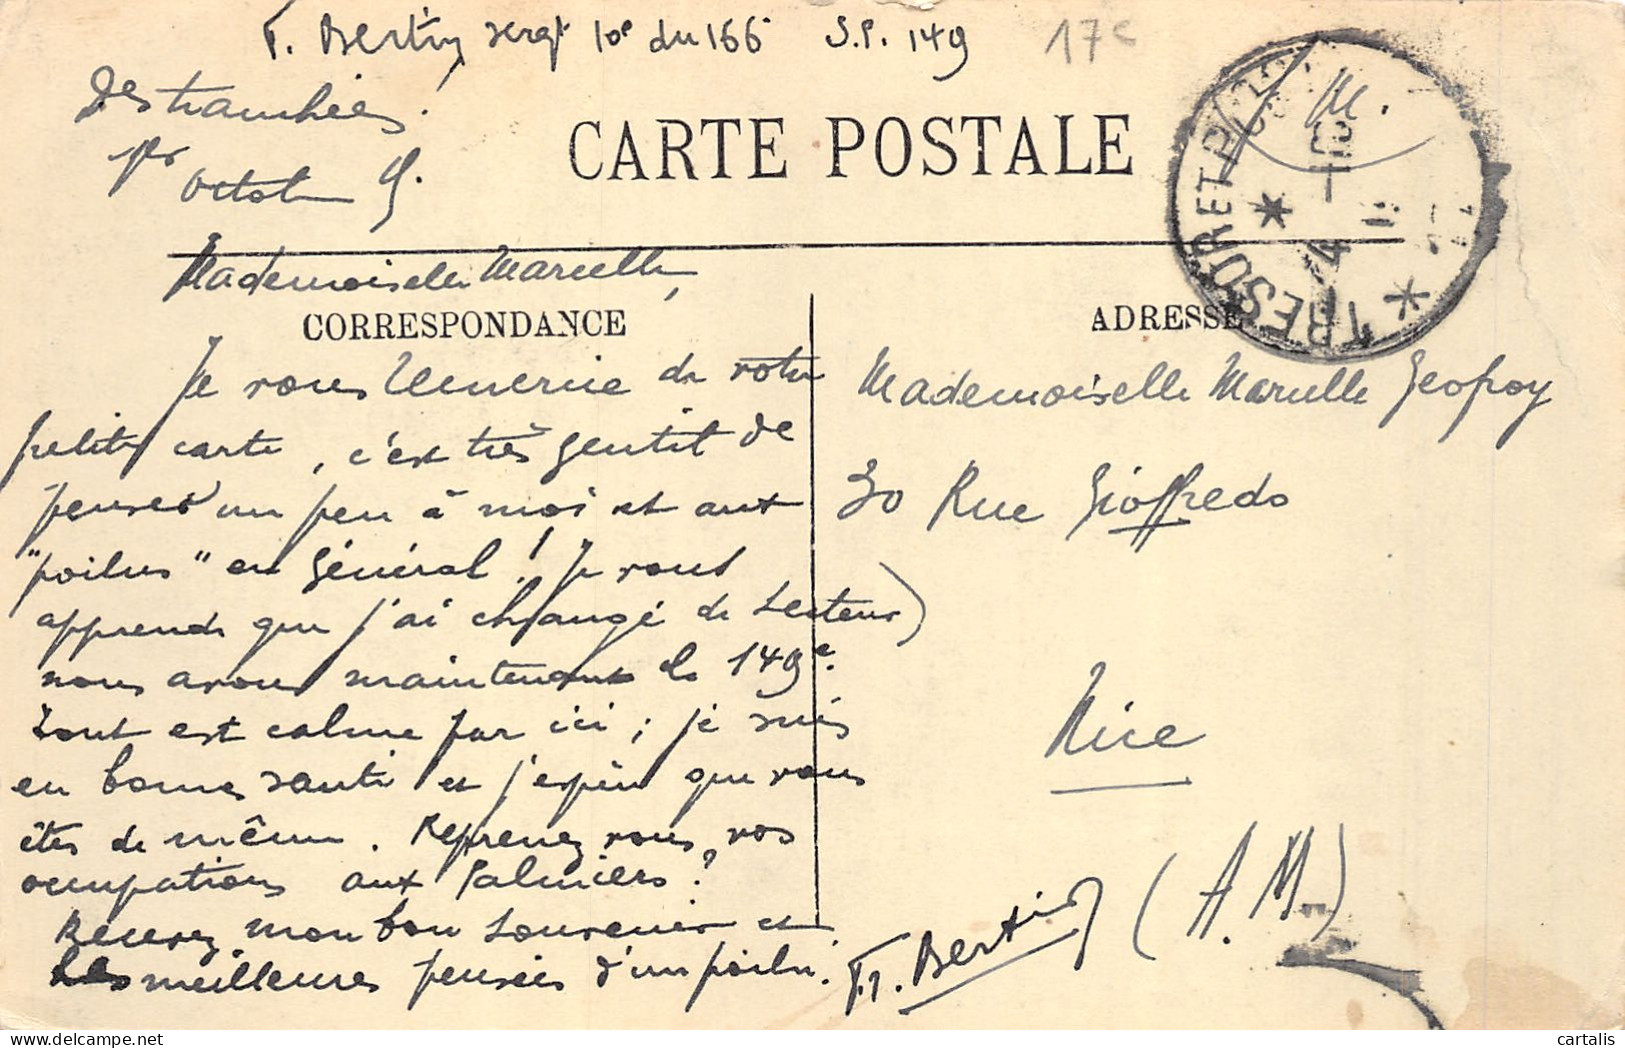 F. Bertin sergt 10e du 166 S.P. 149
17c
Des tranchées!
1er Octob 5.
CARTE POSTALE
TRESOR ET POSTES
Mademoiselle Marcelle,
CORRESPONDANCE
Je vous remercie de votre
petite carte, c'est très gentil de
penser un peu à moi et aux
"poilus" en général! Je vous
apprends que j'ai changé de secteur)
nous avons maintenant le 149e.
Tout est calme par ici; je suis
en bonne santé et j'espère que vous
êtes de même. Reprenez vous, vos
occupations aux Palmiers?
Recevez mon bon souvenir et
les meilleures pensées d'un poilu.
Fr. Bertin
ADRESSE
Mademoiselle Marcelle Geofroy
30 Rue Gioffredo
Nice
(A.M)
cartalis